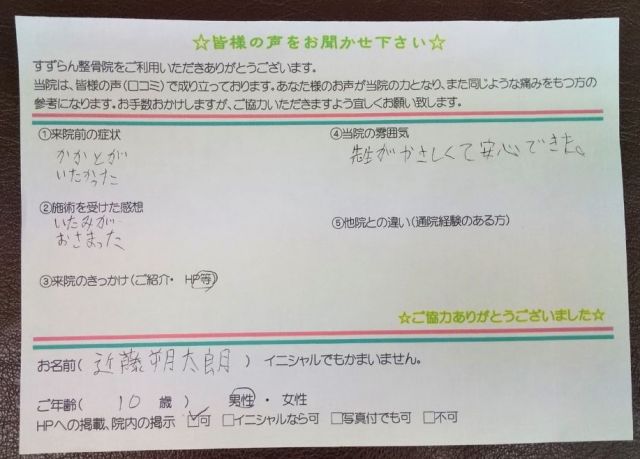 ☆皆様の声をお聞かせ下さい☆
すずらん整骨院をご利用いただきありがとうございます。
当院は、皆様の声(口コミ)で成り立っております。あなた様のお声が当院の力となり、また同じような痛みをもつ方の
参考になります。お手数おかけしますが、ご協力いただきますよう宜しくお願い致します。
①来院前の症状
かかとが
いたかった
②施術を受けた感想
いたみが
おさまった
③来院のきっかけ(ご紹介・ HP等)
④当院の雰囲気
先生がやさしくて安心できた。
⑤他院との違い(通院経験のある方)
☆ご協力ありがとうございました☆
お名前( 近藤朔太朗 ) イニシャルでもかまいません。
ご年齢( 10 歳 ) 男性 ・ 女性
HPへの掲載、院内の掲示 ☑可 □イニシャルなら可 □写真付でも可 □不可